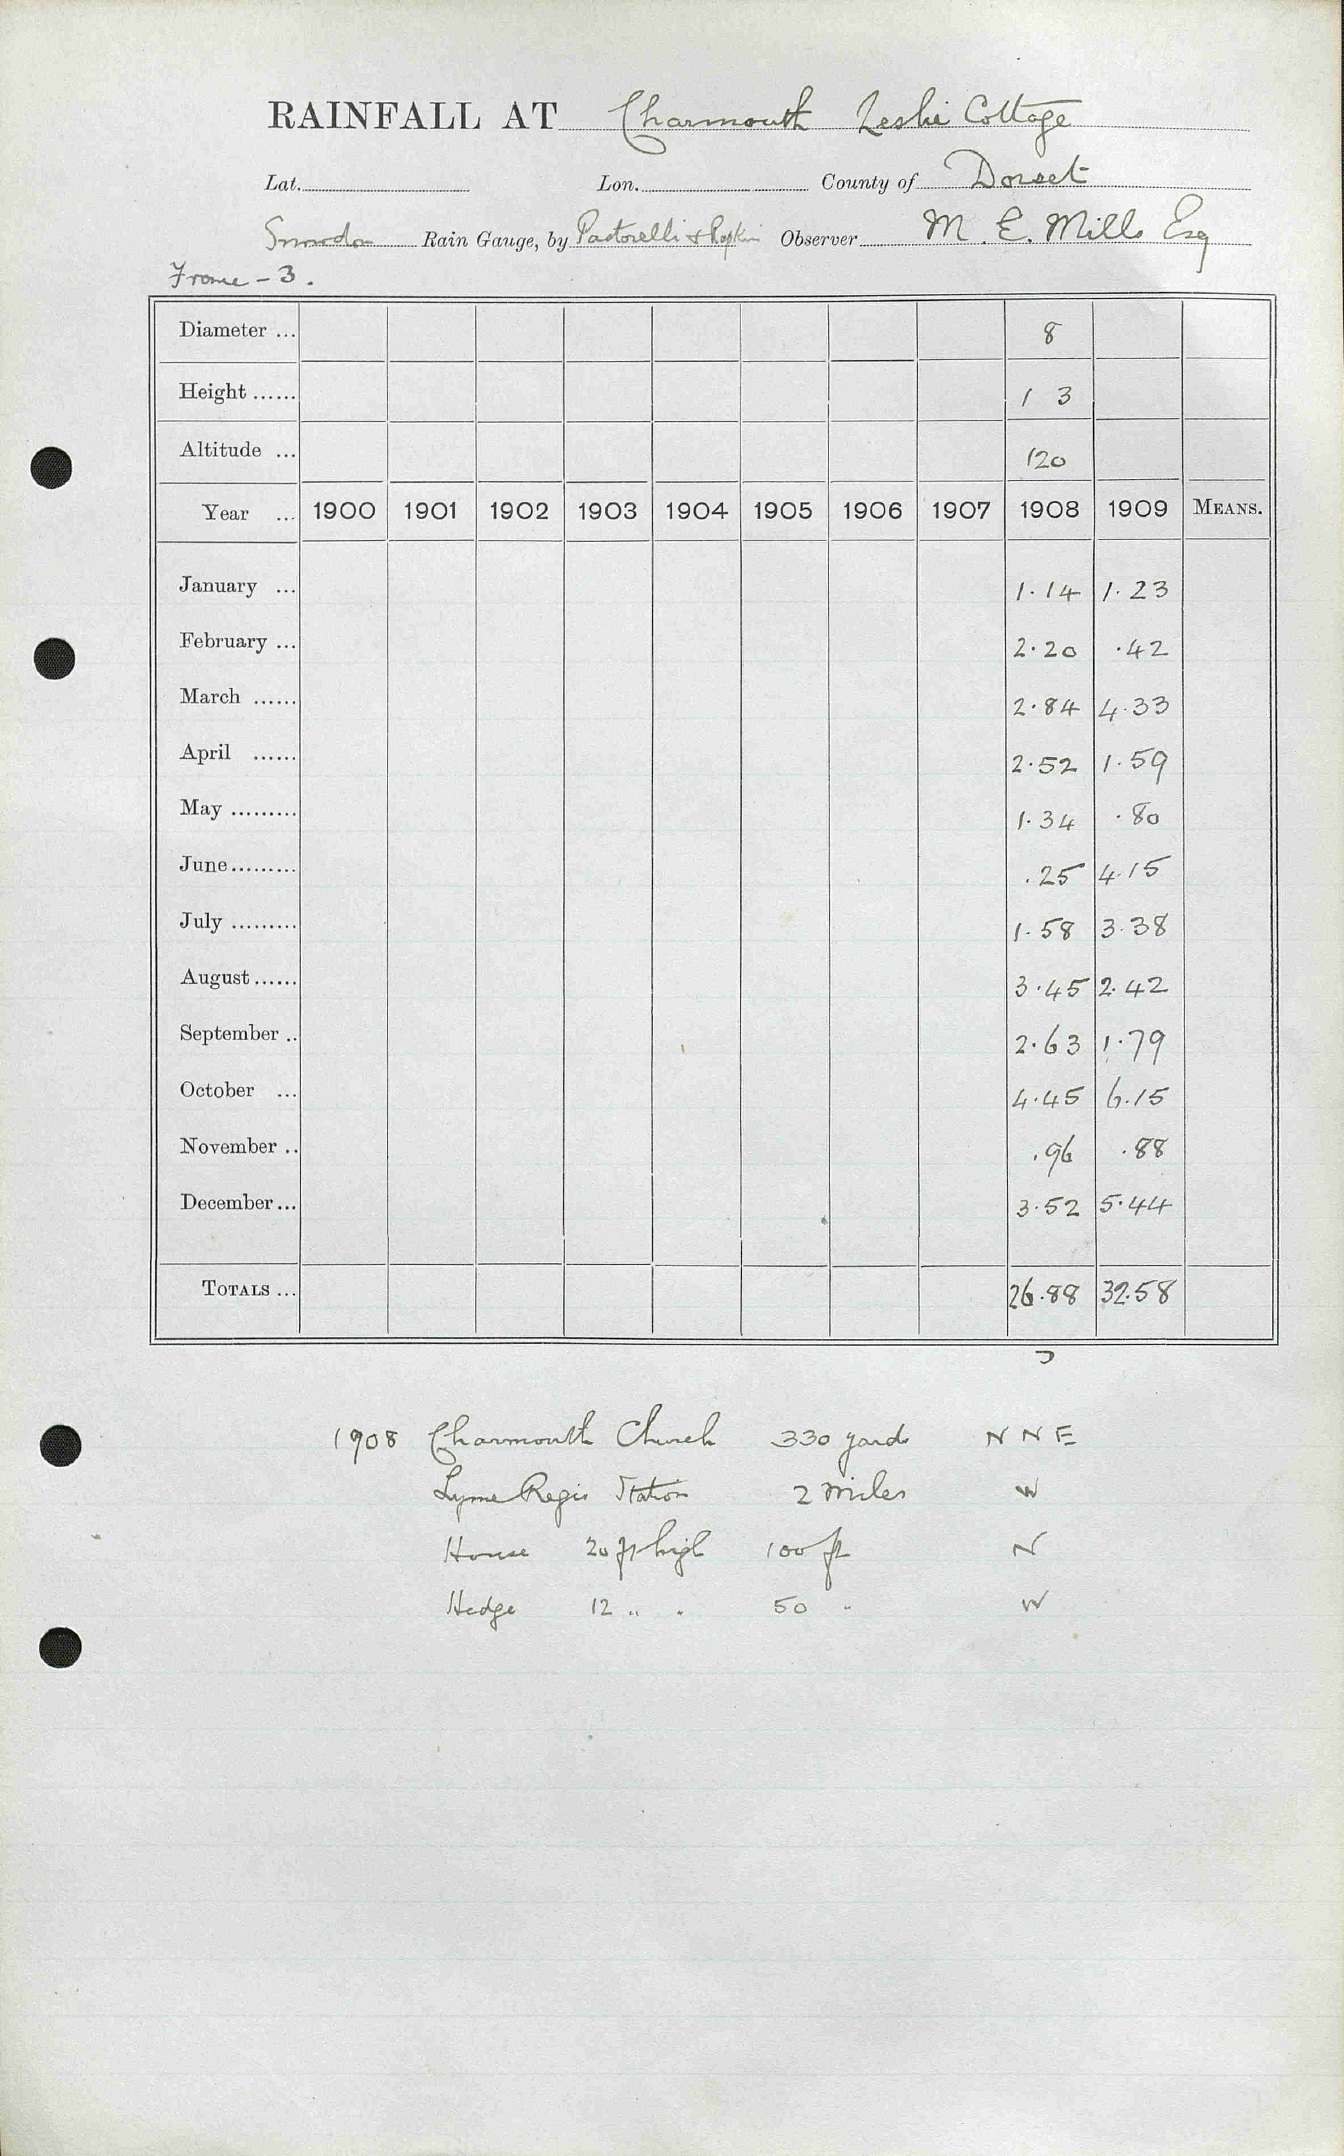 RAINFALL AT Charmouth Leslie Cottage
Lat. Lon. County of Dorset
Snowdon Rain Gauge, by Pastorelli & Rapkin Observer M. E. Mills Esq
Frome - 3.
Diameter ... 8
Height ...... 1 3
Altitude ... 120
Year ... 1900 1901 1902 1903 1904 1905 1906 1907 1908 1909 MEANS.
January ... 1.14 1.23
February ... 2.20 .42
March ...... 2.84 4.33
April ...... 2.52 1.59
May ......... 1.34 .80
June......... .25 4.15
July ......... 1.58 3.38
August...... 3.45 2.42
September .. 2.63 1.79
October ... 4.45 6.15
November .. .96 .88
December... 3.52 5.44
TOTALS ... 26.88 32.58
1908 Charmouth Church 330 yards N N E
Lyme Regis Station 2 miles W
House 20 ft high 100 ft N
Hedge 12 " " 50 " W